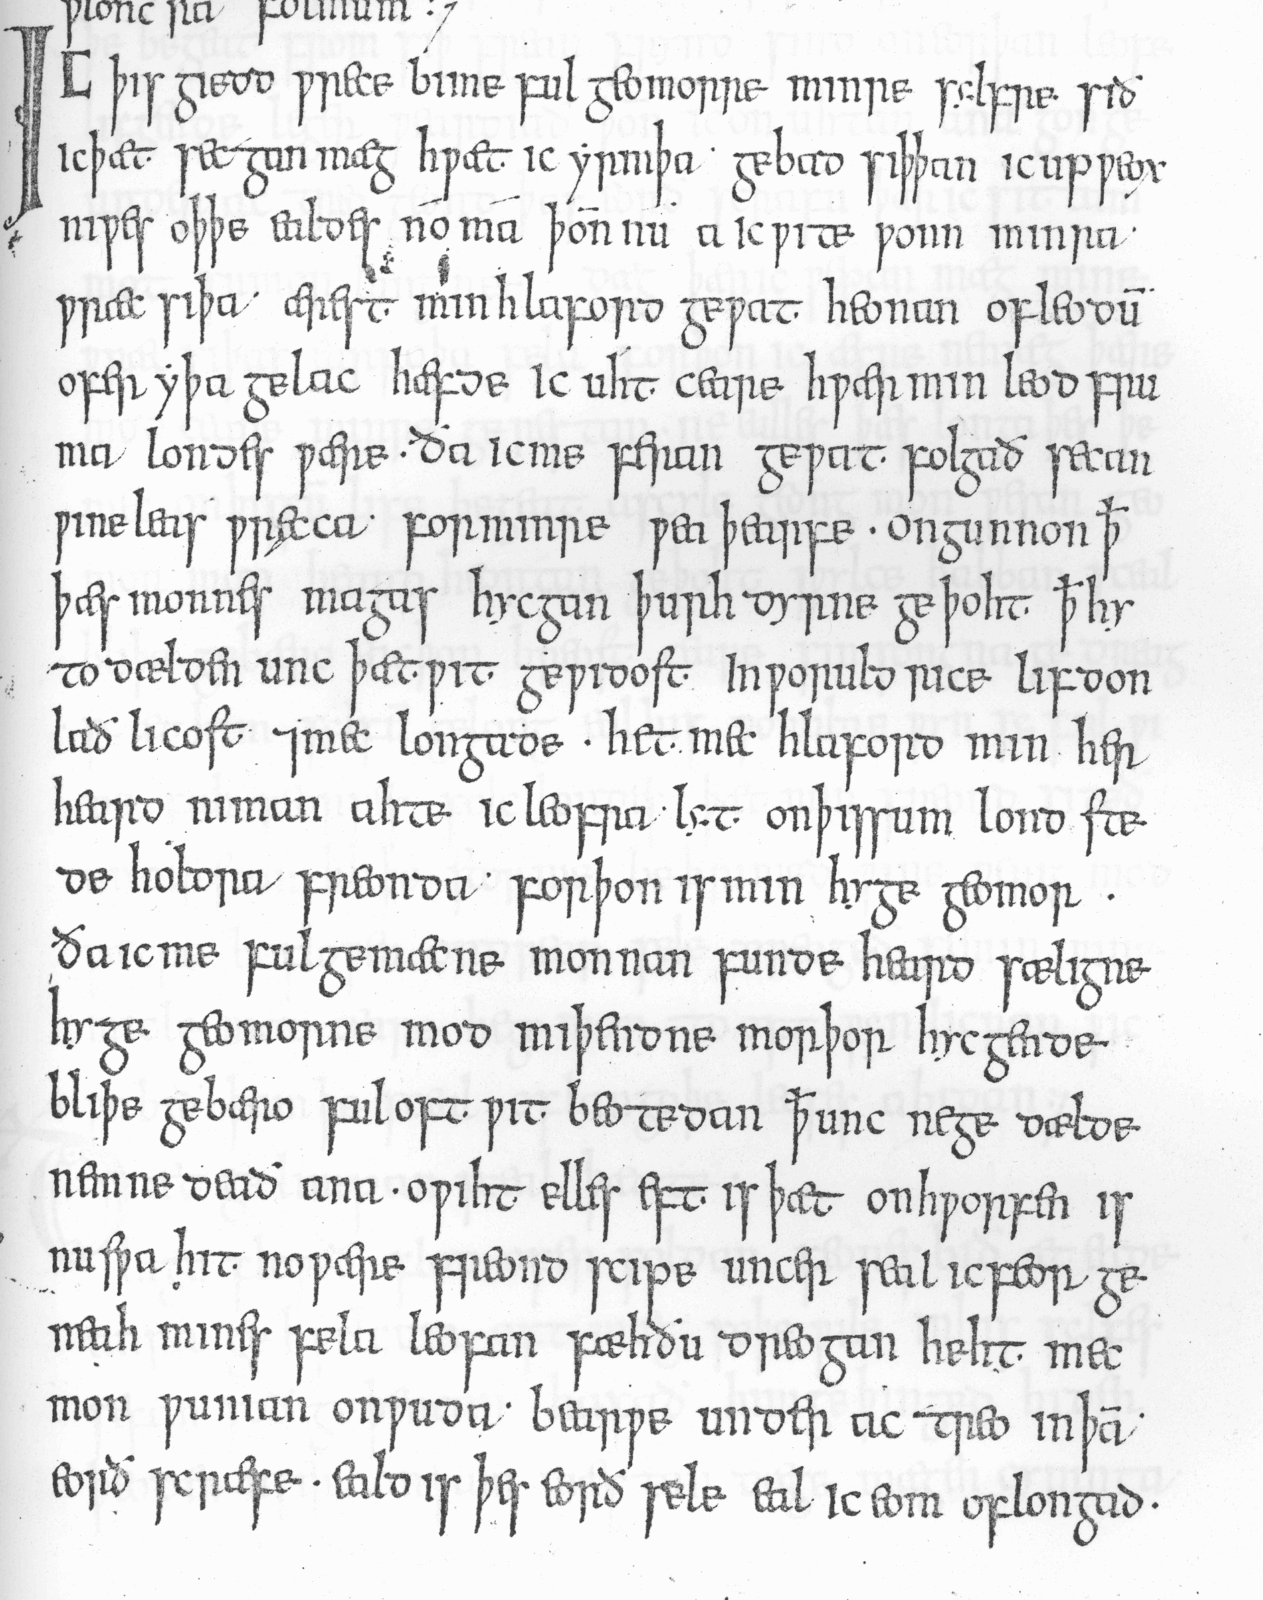 ƿlonc ra folmum :7
IC þis giedd ƿrece bi me ful geomorre minre sylfre sið
ic þæt secgan mæg hƿæt ic yrmþa · gebad siþþan ic up ƿeox
niƿes oþþe ealdes no ma þon̄ nu a ic ƿite ƿonn minra ·
ƿræc siþa · ærest min hlaford geƿat heonan of leodū
ofer yþa gelac hæfde ic uht ceare hƿær min leod fru
ma londes ƿære · Ða ic me feran geƿat folgað secan
ƿine leas ƿræcca · for minre ƿea þearfe · ongunnon ꝥ
þæs monnes magas hycgan þurh dyrne geþoht ꝥ hy
to dælden unc þæt ƿit geƿidost in ƿoruld rice lifdon
lað licost ⁊ mec longade · het mec hlaford min her
heard niman ahte ic leofra lyt on þissum lond ste
de holdra freonda · forþon is min hyge geomor ·
Ða ic me ful gemæcne monnan funde heard sæligne
hyge geomorne mod miþendne morþor hycgende
bliþe gebæro ful oft ƿit beotedan ꝥ unc ne ge dælde
nemne deað ana · oƿiht elles eft is þæt onhƿorfen is
nu sƿa hit no ƿære freond sciƿe uncer seal ic feor ge
neah mines fela leofan fæhðu dreogan heht mec
mon ƿunian on ƿuda · bearƿe under ac treo in þā ·
eorð scræfe · eald is þes eorð sele eal ic eom oflongad ·